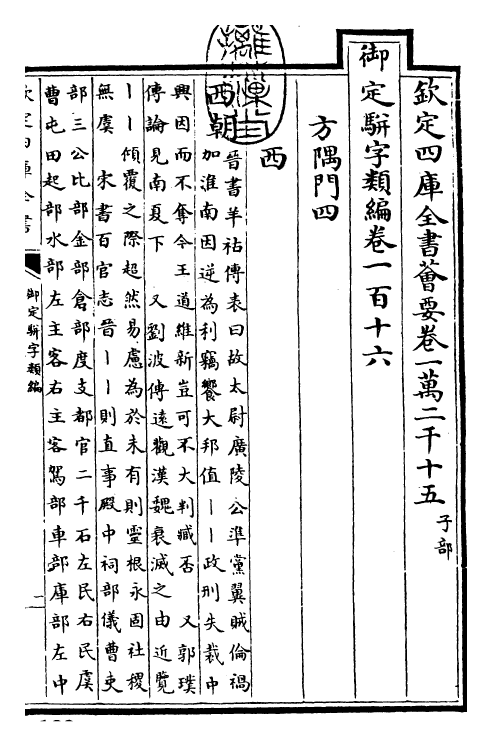 欽定四庫全書薈要卷一萬二千十五 子部
御定駢字類編卷一百十六
方隅門四
西
西朝
晉書羊祜傳表曰故太尉廣陵公準黨翼賊倫禍
加淮南因逆為利竊饗大邦值丨丨政刑失裁中
興因而不奪今王道維新豈可不大判臧否 又郭璞
傳論見南夏下 又劉波傳遠觀漢魏衰滅之由近覽
丨丨傾覆之際超然易慮為於未有則靈根永固社稷
無虞 宋書百官志晉丨丨則直事殿中祠部儀曹吏
部三公比部金部倉部度支都官二千石左民右民虞
曹屯田起部水部左主客右主客駕部車部庫部左中
欽定四庫全書
御定駢字類編